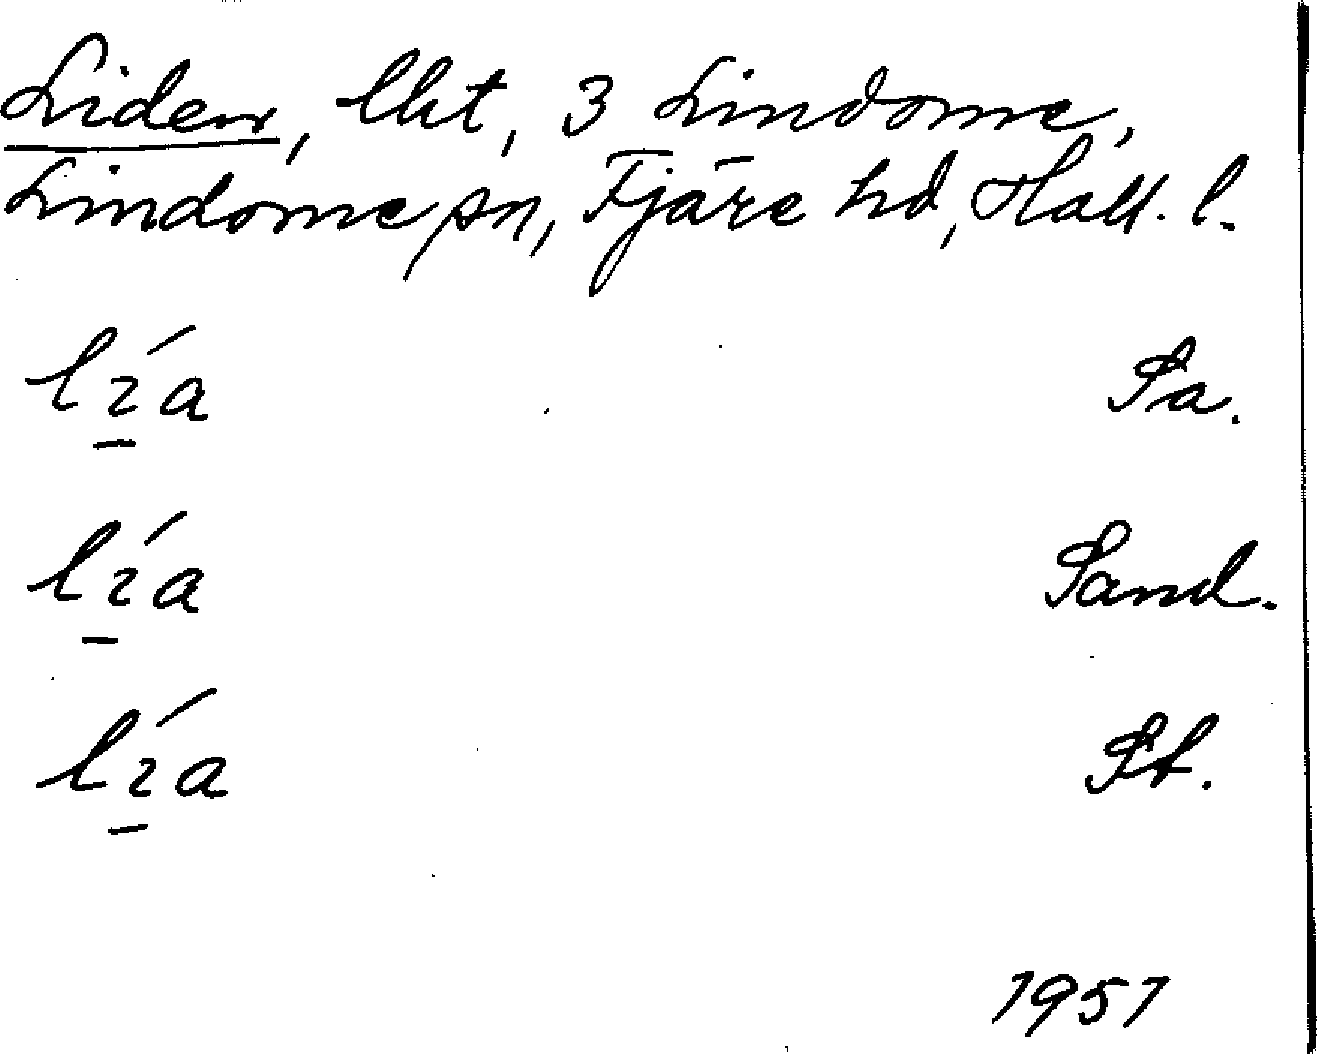 Liden, lht, 3 Lindome,
Lindome sn, Fjäre hd, Hall. l.
lı̱́a Sa.
lı̱́a Sand.
lı̱́a St.
1951